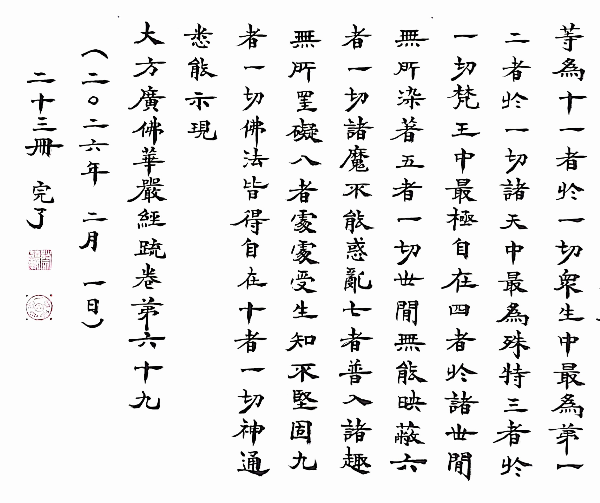 等為十一者於一切衆生中最為第一
二者於一切諸天中最為殊特三者於
一切梵王中最極自在四者於諸世間
無所染著五者一切世間無能映蔽六
者一切諸魔不能惑亂七者普入諸趣
無所罣礙八者處處受生知不堅固九
者一切佛法皆得自在十者一切神通
悉能示現
大方廣佛華嚴經疏卷第六十九
（二〇二六年 二月 一日）
二十三冊 完了